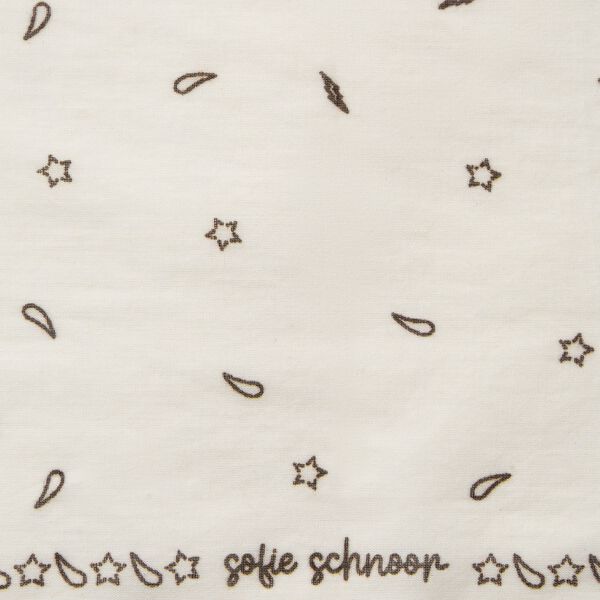 sofie schnoor